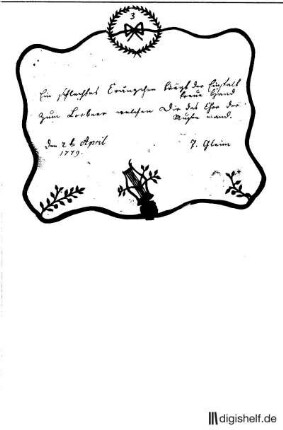 3
Ein schlechtes Zweigchen beugt der Einfalt
treue Hand
Zum Lorbeer welchen Dir das Chor der
Musen wand.
den 26 April
1779.
J. Gleim
digishelf.de